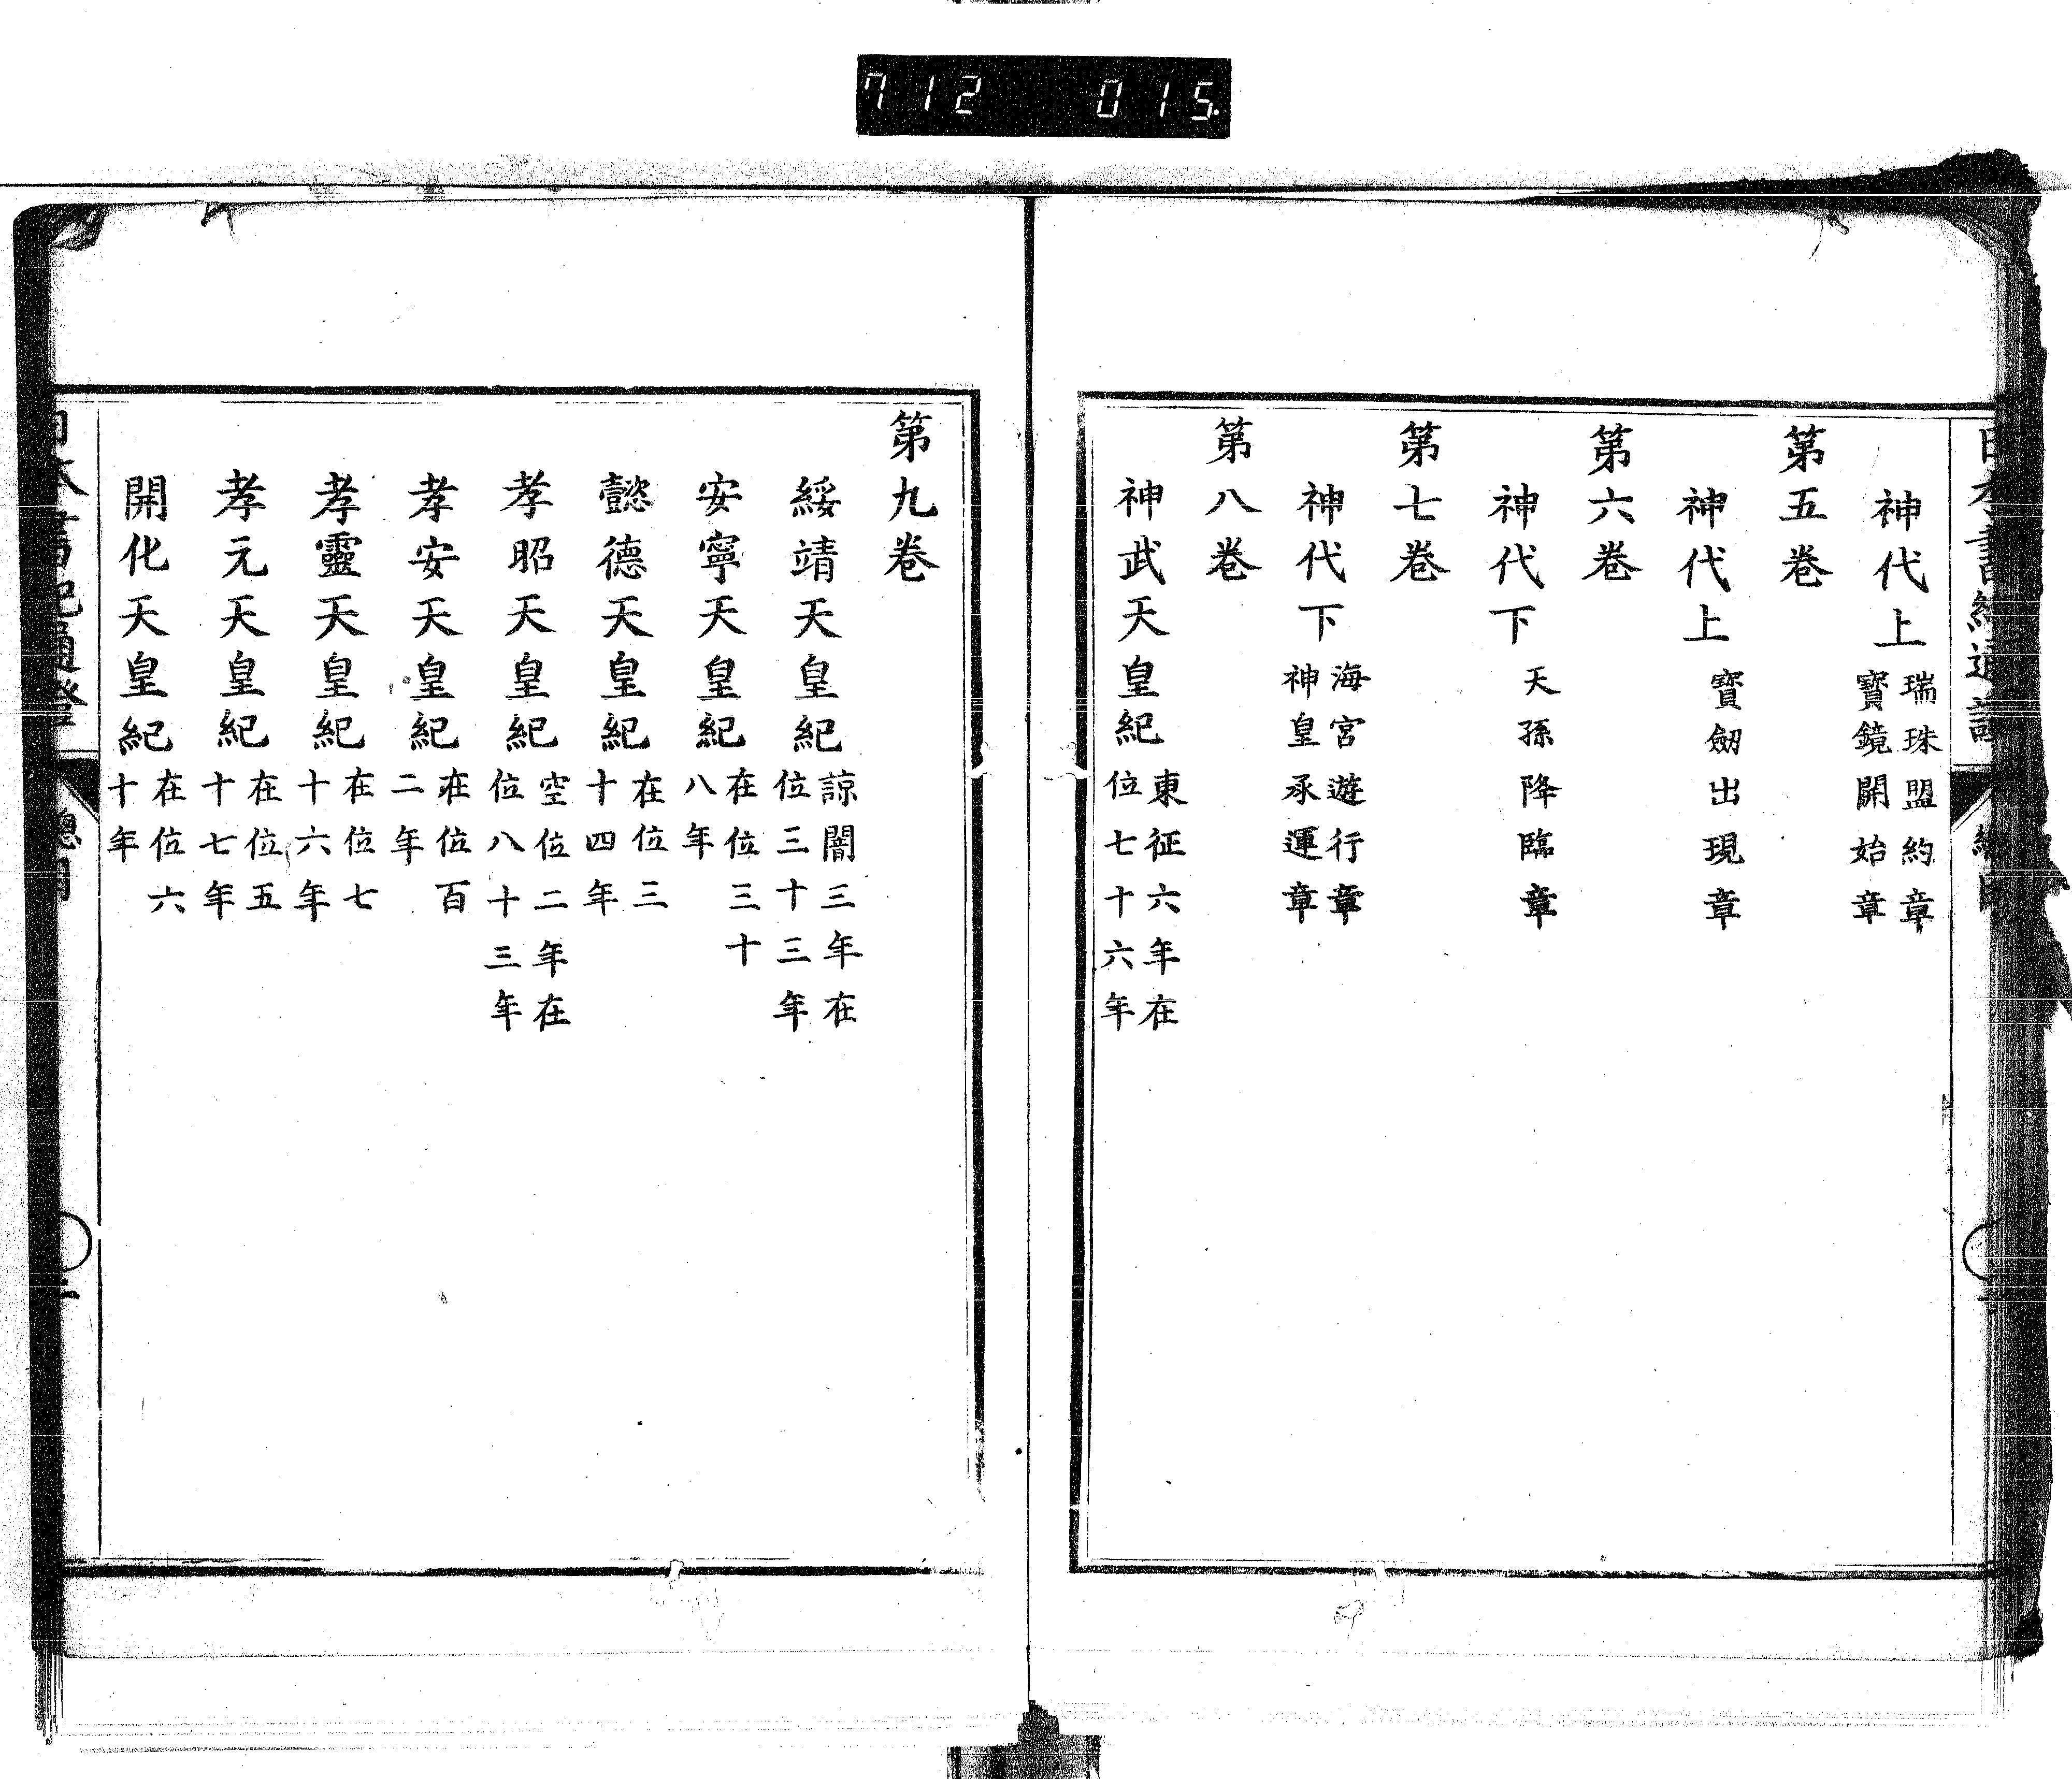 712 015
神代上 瑞珠盟約章 寶鏡開始章
第五卷
神代上 寶劒出現章
第六卷
神代下 天孫降臨章
第七卷
神代下 海宮遊行章 神皇承運章
第八卷
神武天皇紀 東征六年在位七十六年
第九卷
綏靖天皇紀 諒闇三年在位三十三年
安寧天皇紀 在位三十八年
懿德天皇紀 在位三十四年
孝昭天皇紀 空位二年在位八十三年
孝安天皇紀 在位百二年
孝靈天皇紀 在位七十六年
孝元天皇紀 在位五十七年
開化天皇紀 在位六十年